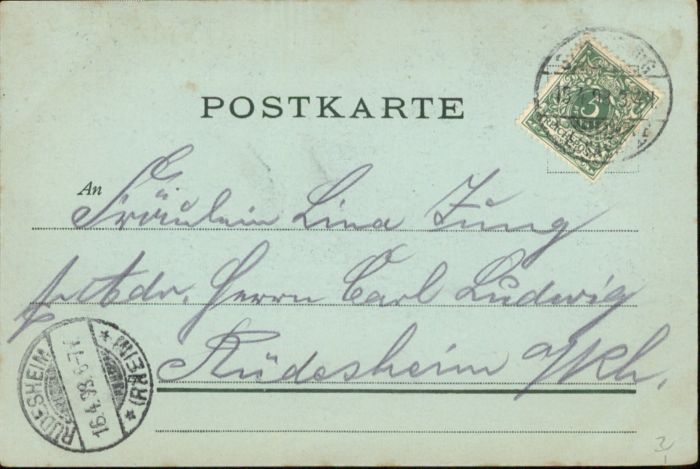 POSTKARTE
3
REICHSPOST
An Fräulein Lina Jung
p. Adr. Herrn Carl Ludwig
Rüdesheim a/Rh.
RÜDESHEIM
16.4.98.6-7
*(RHEIN)*